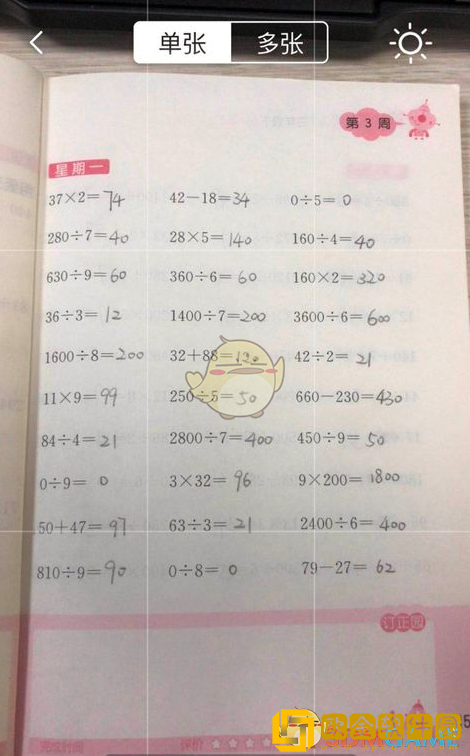 单张 多张
第 3 周
星期一
37×2=74 42−18=34 0÷5=0
280÷7=40 28×5=140 160÷4=40
630÷9=60 360÷6=60 160×2=320
36÷3=12 1400÷7=200 3600÷6=600
1600÷8=200 32+88=120 42÷2=21
11×9=99 250÷5=50 660−230=430
84÷4=21 2800÷7=400 450÷9=50
0÷9=0 3×32=96 9×200=1800
50+47=97 63÷3=21 2400÷6=400
810÷9=90 0÷8=0 79−27=62
订正园
完成时间 评价